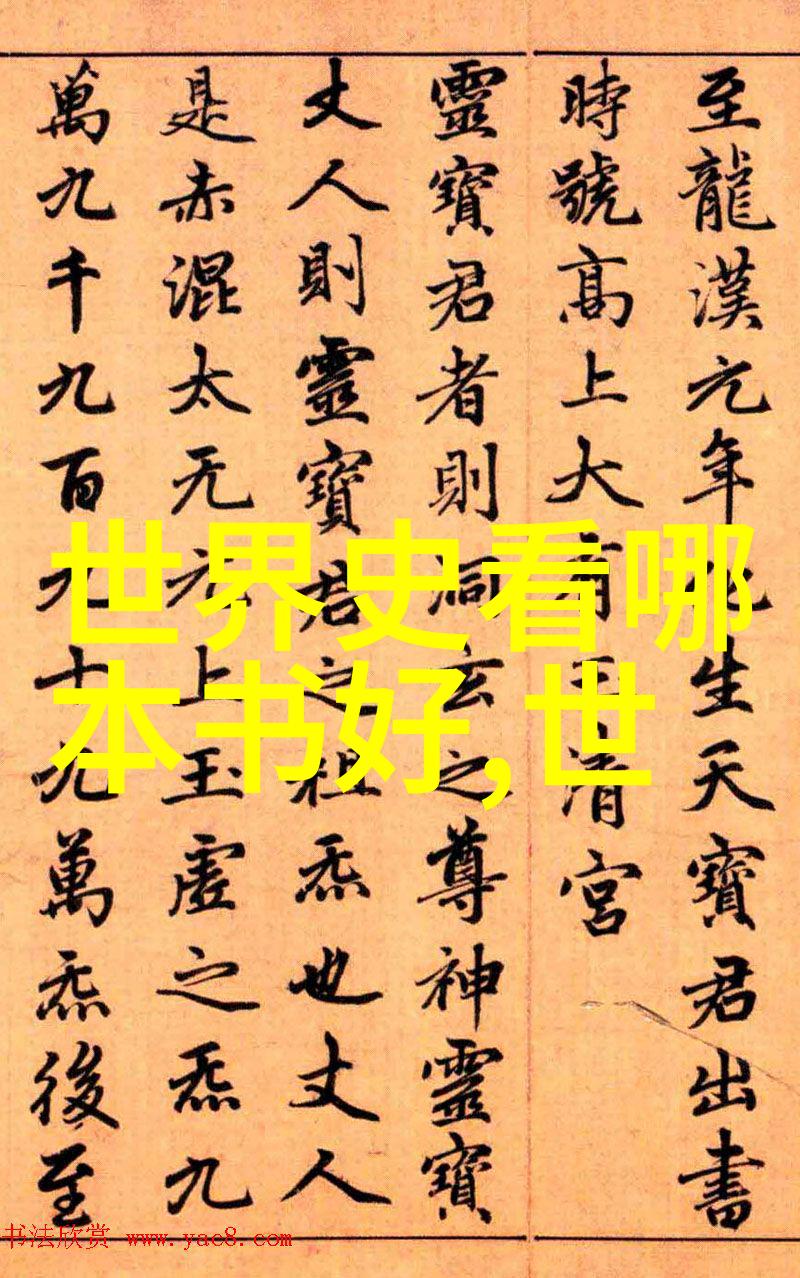 至龍漢元年化生天寶君出書
時號高上大有玉清宮
靈寶君者則洞玄之尊神靈寶
丈人則靈寶君之祖炁也丈人
是赤混太无元上玉虛之炁九
萬九千九百九十九萬炁後至
世界史看哪
本书好,世
书法欣赏 www.yac8.com